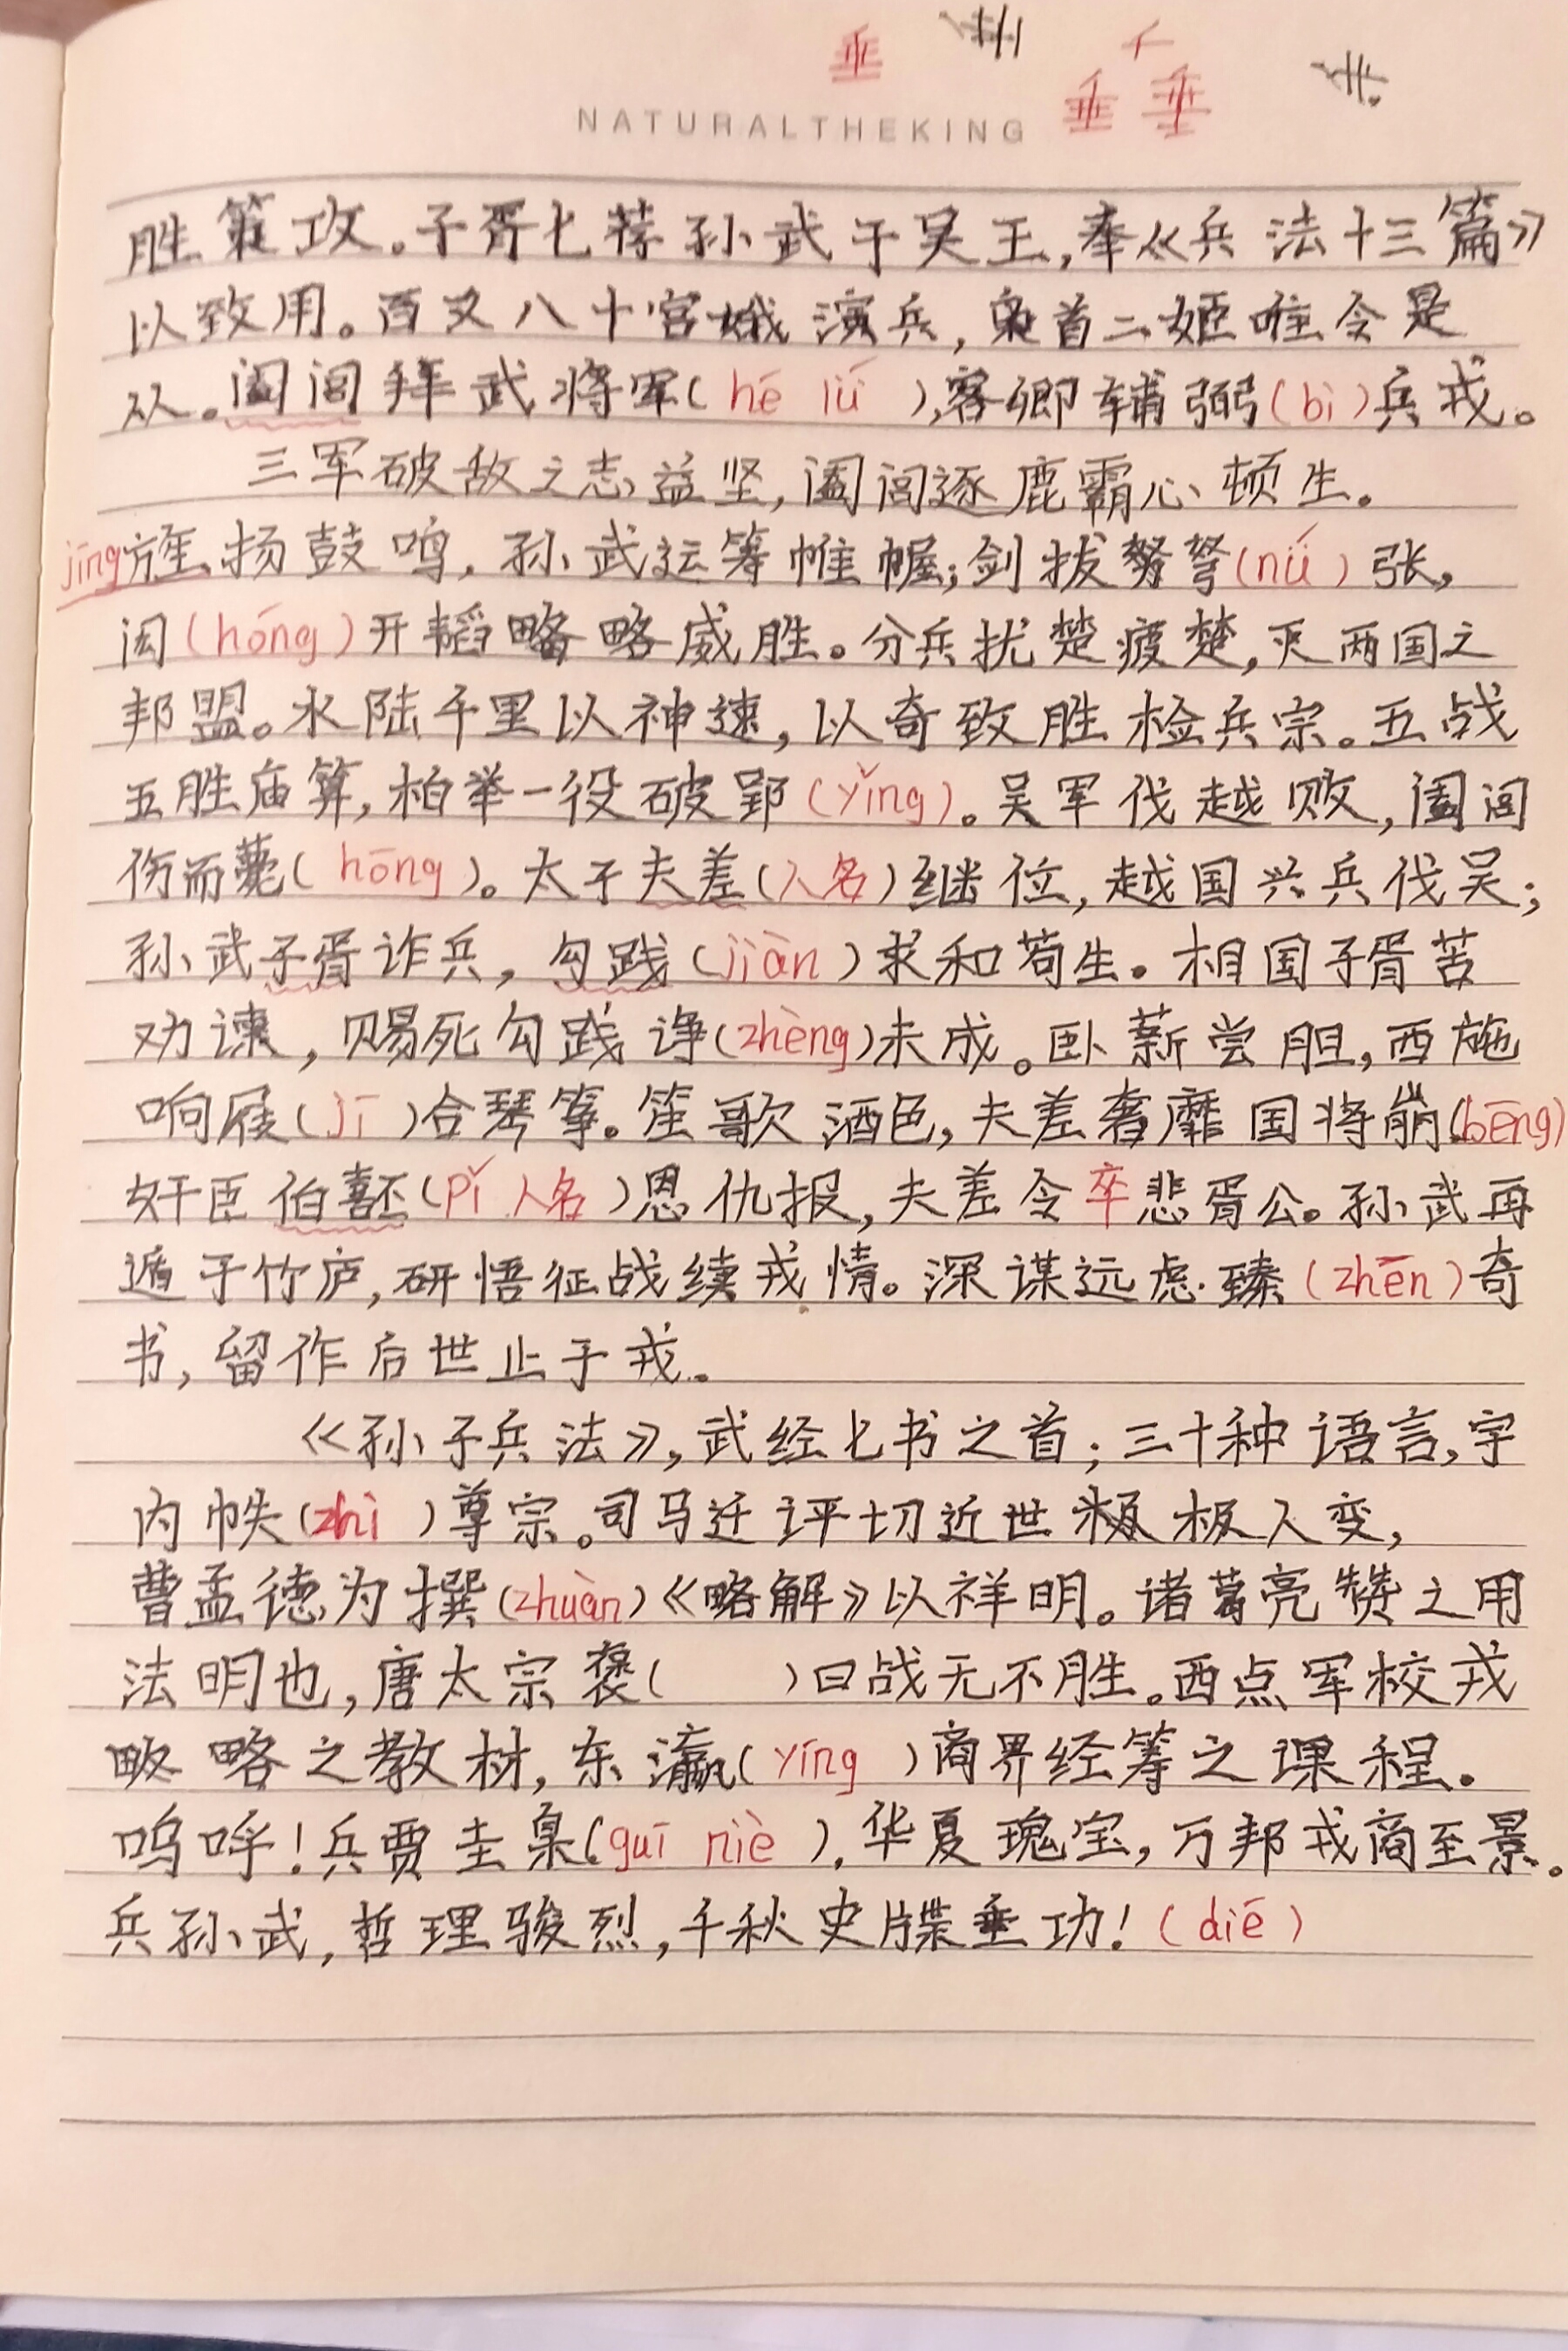 垂 垂 垂
NATURALTHEKING
胜策攻。子胥七荐孙武于吴王,奉《兵法十三篇》
以致用。百又八十宫娥演兵,枭首二姬唯令是
从。阖闾拜武将军(hé lǘ),客卿辅弼(bì)兵戎。
三军破敌之志益坚,阖闾逐鹿霸心顿生。
jīng旌扬鼓鸣,孙武运筹帷幄;剑拔弩(nǘ)张,
闳(hóng)开韬略略威胜。分兵扰楚疲楚,灭两国之
邦盟。水陆千里以神速,以奇致胜检兵宗。五战
五胜庙算,柏举一役破郢(yǐng)。吴军伐越败,阖闾
伤而薨(hōng)。太子夫差(人名)继位,越国兴兵伐吴;
孙武子胥诈兵,勾践(jiàn)求和苟生。相国子胥苦
劝谏,赐死勾践诤(zhèng)未成。卧薪尝胆,西施
响屐(jī)合琴筝。笙歌酒色,夫差奢靡国将崩(bēng)
奸臣伯嚭(pǐ人名)恩仇报,夫差令卒悲胥公。孙武再
遁于竹庐,研悟征战续戎情。深谋远虑臻(zhēn)奇
书,留作后世止于戎。
《孙子兵法》,武经七书之首;三十种语言,宇
内帙(zhì)尊宗。司马迁评切近世极人变,
曹孟德为撰(zhuàn)《略解》以祥明。诸葛亮赞之用
法明也,唐太宗褒( )曰战无不胜。西点军校戎
略之教材,东瀛(yíng)商界经筹之课程。
呜呼!兵贾圭臬(guī niè),华夏瑰宝,万邦戎商至景。
兵孙武,哲理骏烈,千秋史牒垂功!(dié)